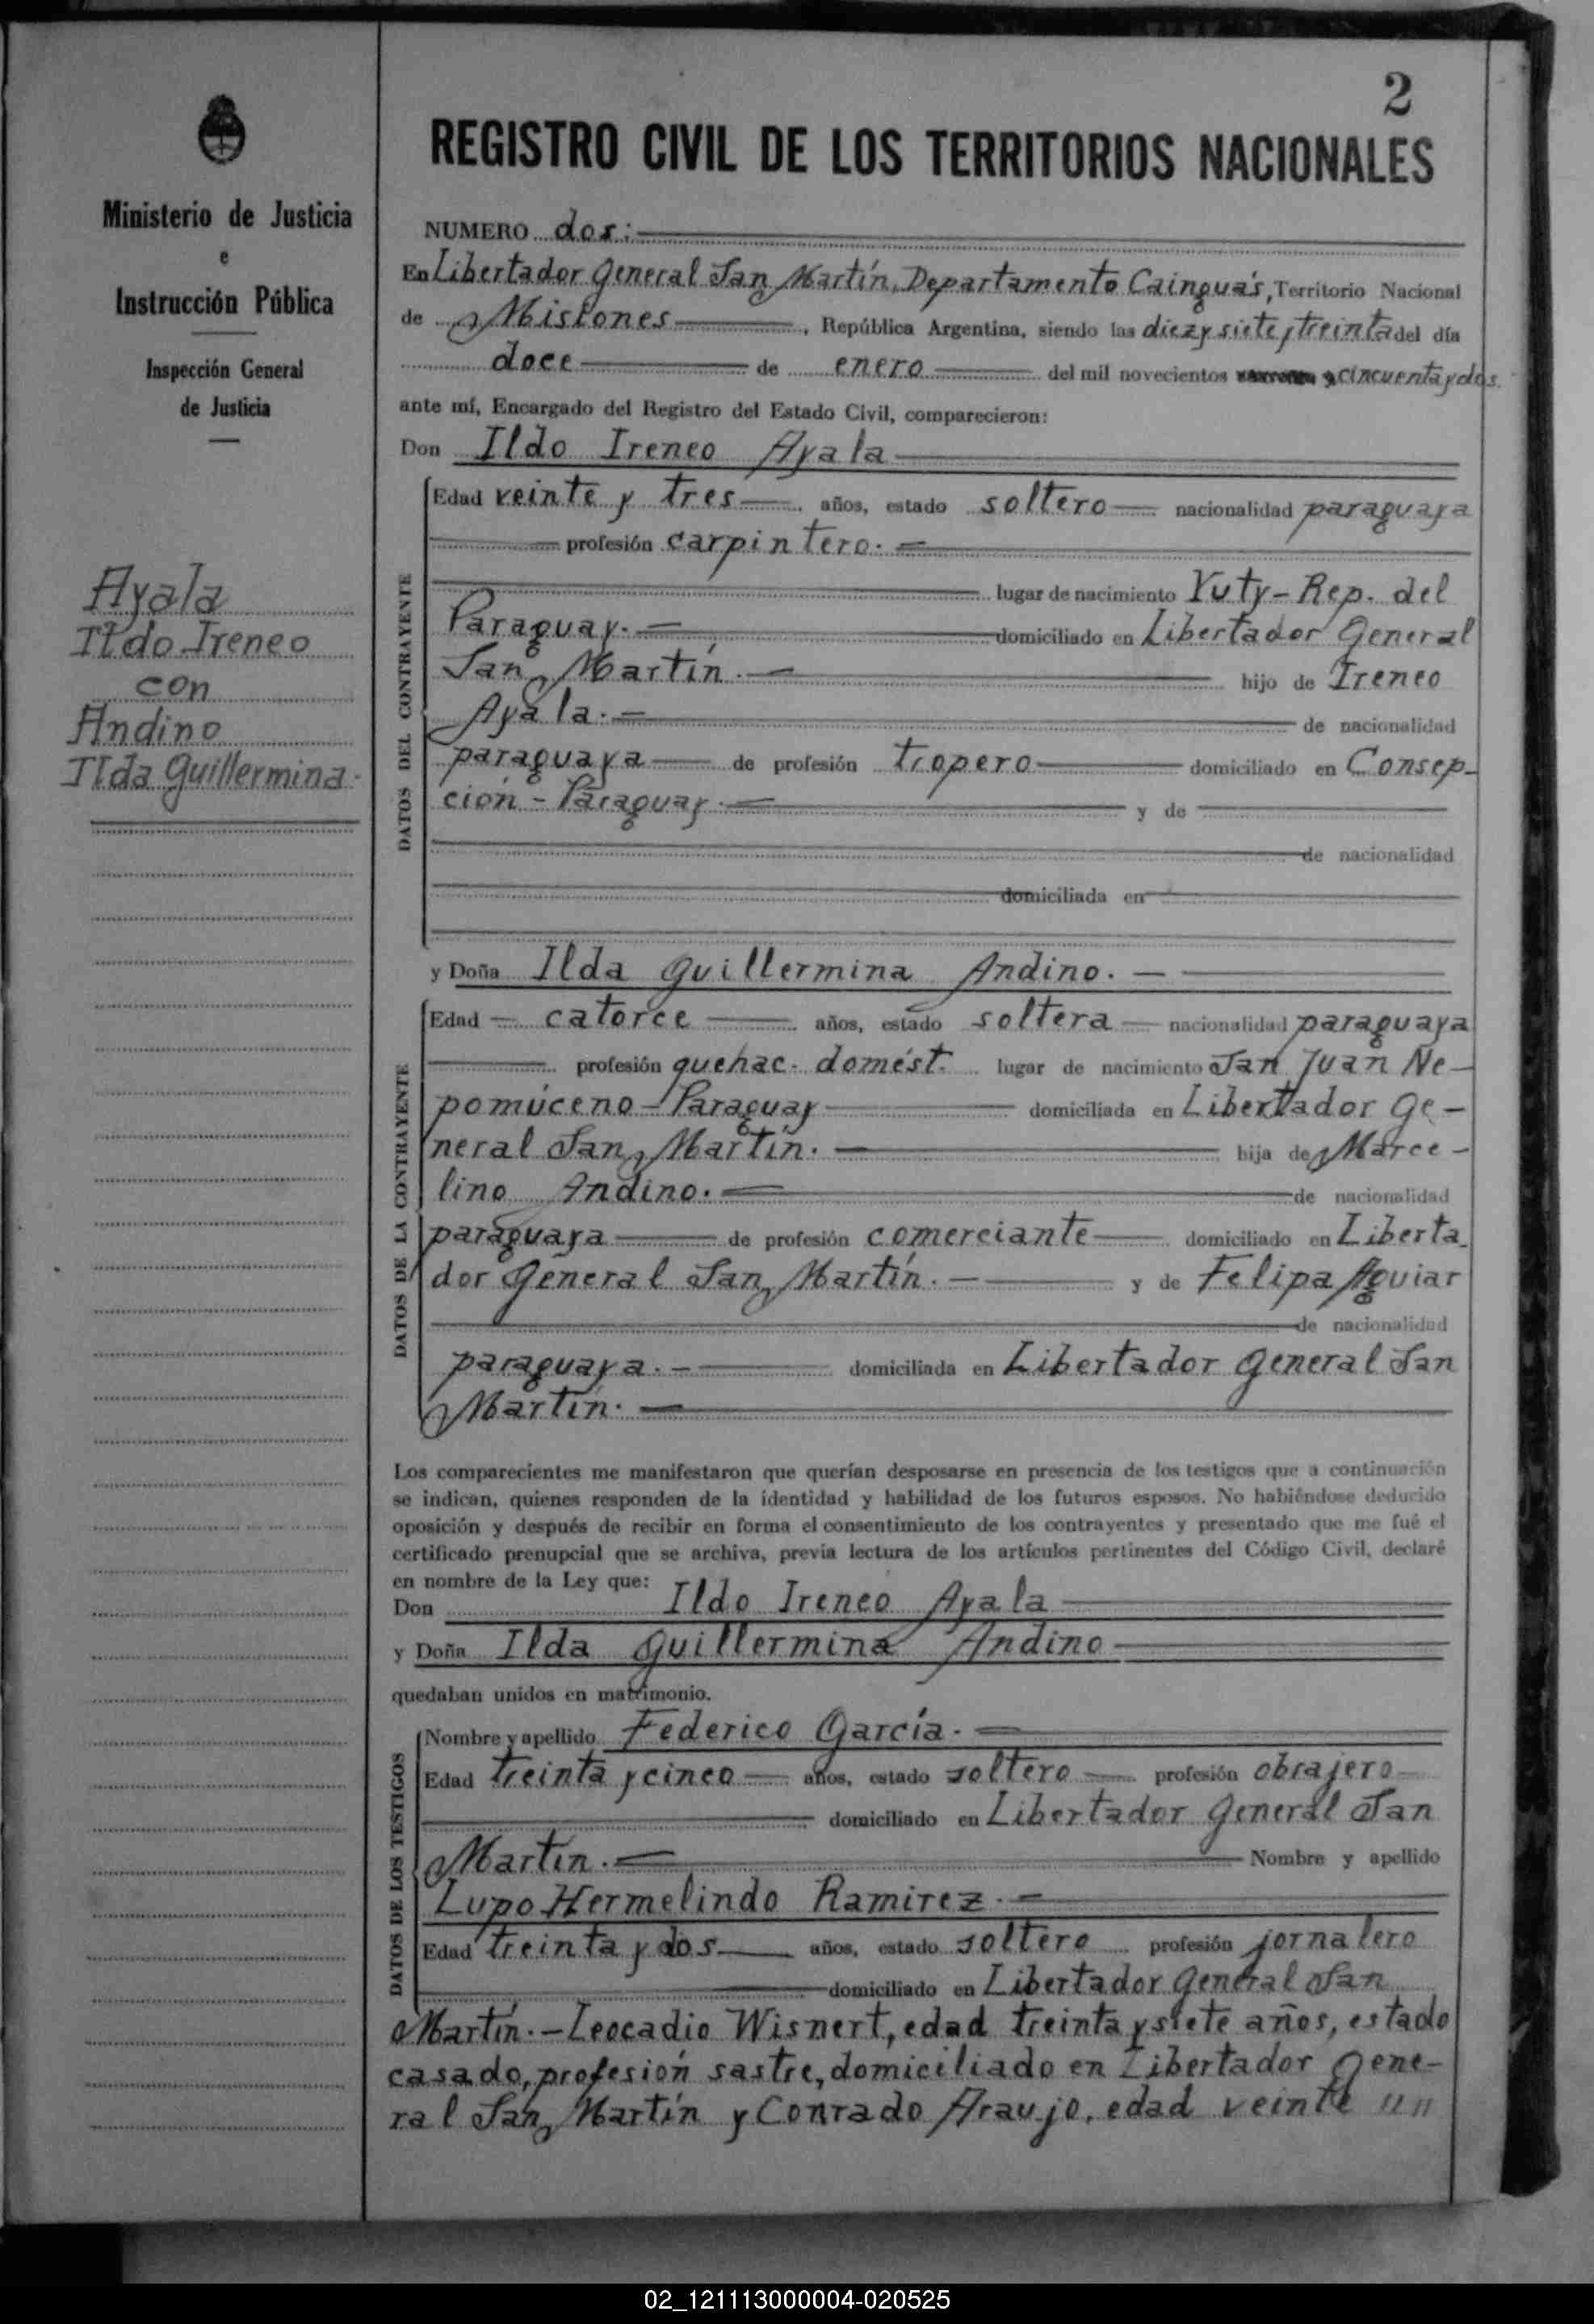 2
REGISTRO CIVIL DE LOS TERRITORIOS NACIONALES
Ministerio de Justicia
e
Instrucción Pública
Inspección General
de Justicia
Ayala
Ildo Ireneo
con
Andino
Ilda Guillermina.
NUMERO dos:
En Libertador General San Martín, Departamento Cainguás, Territorio Nacional
de Misiones, República Argentina, siendo las diez y siete y treinta del día
doce de enero del mil novecientos y cincuenta y dos.
ante mí, Encargado del Registro del Estado Civil, comparecieron:
Don Ildo Ireneo Ayala
DATOS DEL CONTRAYENTE
Edad veinte y tres años, estado soltero nacionalidad paraguaya
profesión carpintero.
lugar de nacimiento Yuty - Rep. del
Paraguay. domiciliado en Libertador General
San Martín. hijo de Ireneo
Ayala. de nacionalidad
paraguaya de profesión tropero domiciliado en Consep-
ción - Paraguay. y de
de nacionalidad
domiciliada en
y Doña Ilda Guillermina Andino.
DATOS DE LA CONTRAYENTE
Edad catorce años, estado soltera nacionalidad paraguaya
profesión quehac. domést. lugar de nacimiento San Juan Ne-
pomúceno - Paraguay domiciliada en Libertador Ge-
neral San Martín. hija de Marce-
lino Andino. de nacionalidad
paraguaya de profesión comerciante domiciliado en Liberta-
dor General San Martín. y de Felipa Aguiar
de nacionalidad
paraguaya. domiciliada en Libertador General San
Martín.
Los comparecientes me manifestaron que querían desposarse en presencia de los testigos que a continuación
se indican, quienes responden de la identidad y habilidad de los futuros esposos. No habiéndose deducido
oposición y después de recibir en forma el consentimiento de los contrayentes y presentado que me fué el
certificado prenupcial que se archiva, previa lectura de los artículos pertinentes del Código Civil, declaré
en nombre de la Ley que:
Don Ildo Ireneo Ayala
y Doña Ilda Guillermina Andino
quedaban unidos en matrimonio.
DATOS DE LOS TESTIGOS
Nombre y apellido Federico García.
Edad treinta y cinco años, estado soltero profesión obrajero
domiciliado en Libertador General San
Martín. Nombre y apellido
Lupo Hermelindo Ramirez.
Edad treinta y dos años, estado soltero profesión jornalero
domiciliado en Libertador General San
Martín. - Leocadio Wisnert, edad treinta y siete años, estado
casado, profesión sastre, domiciliado en Libertador Gene-
ral San Martín y Conrado Araujo, edad veinte un
02_121113000004-020525